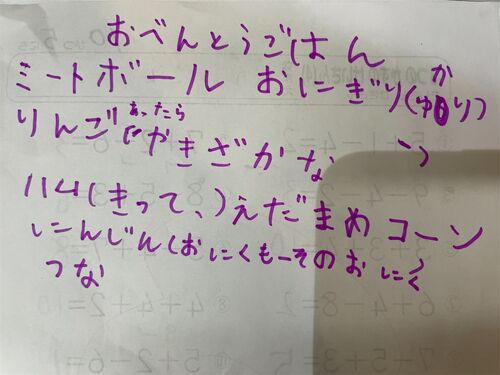 おべんとうごはん
ミートボール おにぎり(ゆかり)
りんご(あったら) やきざかな
ハム(きって、)えだまめコーン
にんじん(おにくも-そのおにく
つな